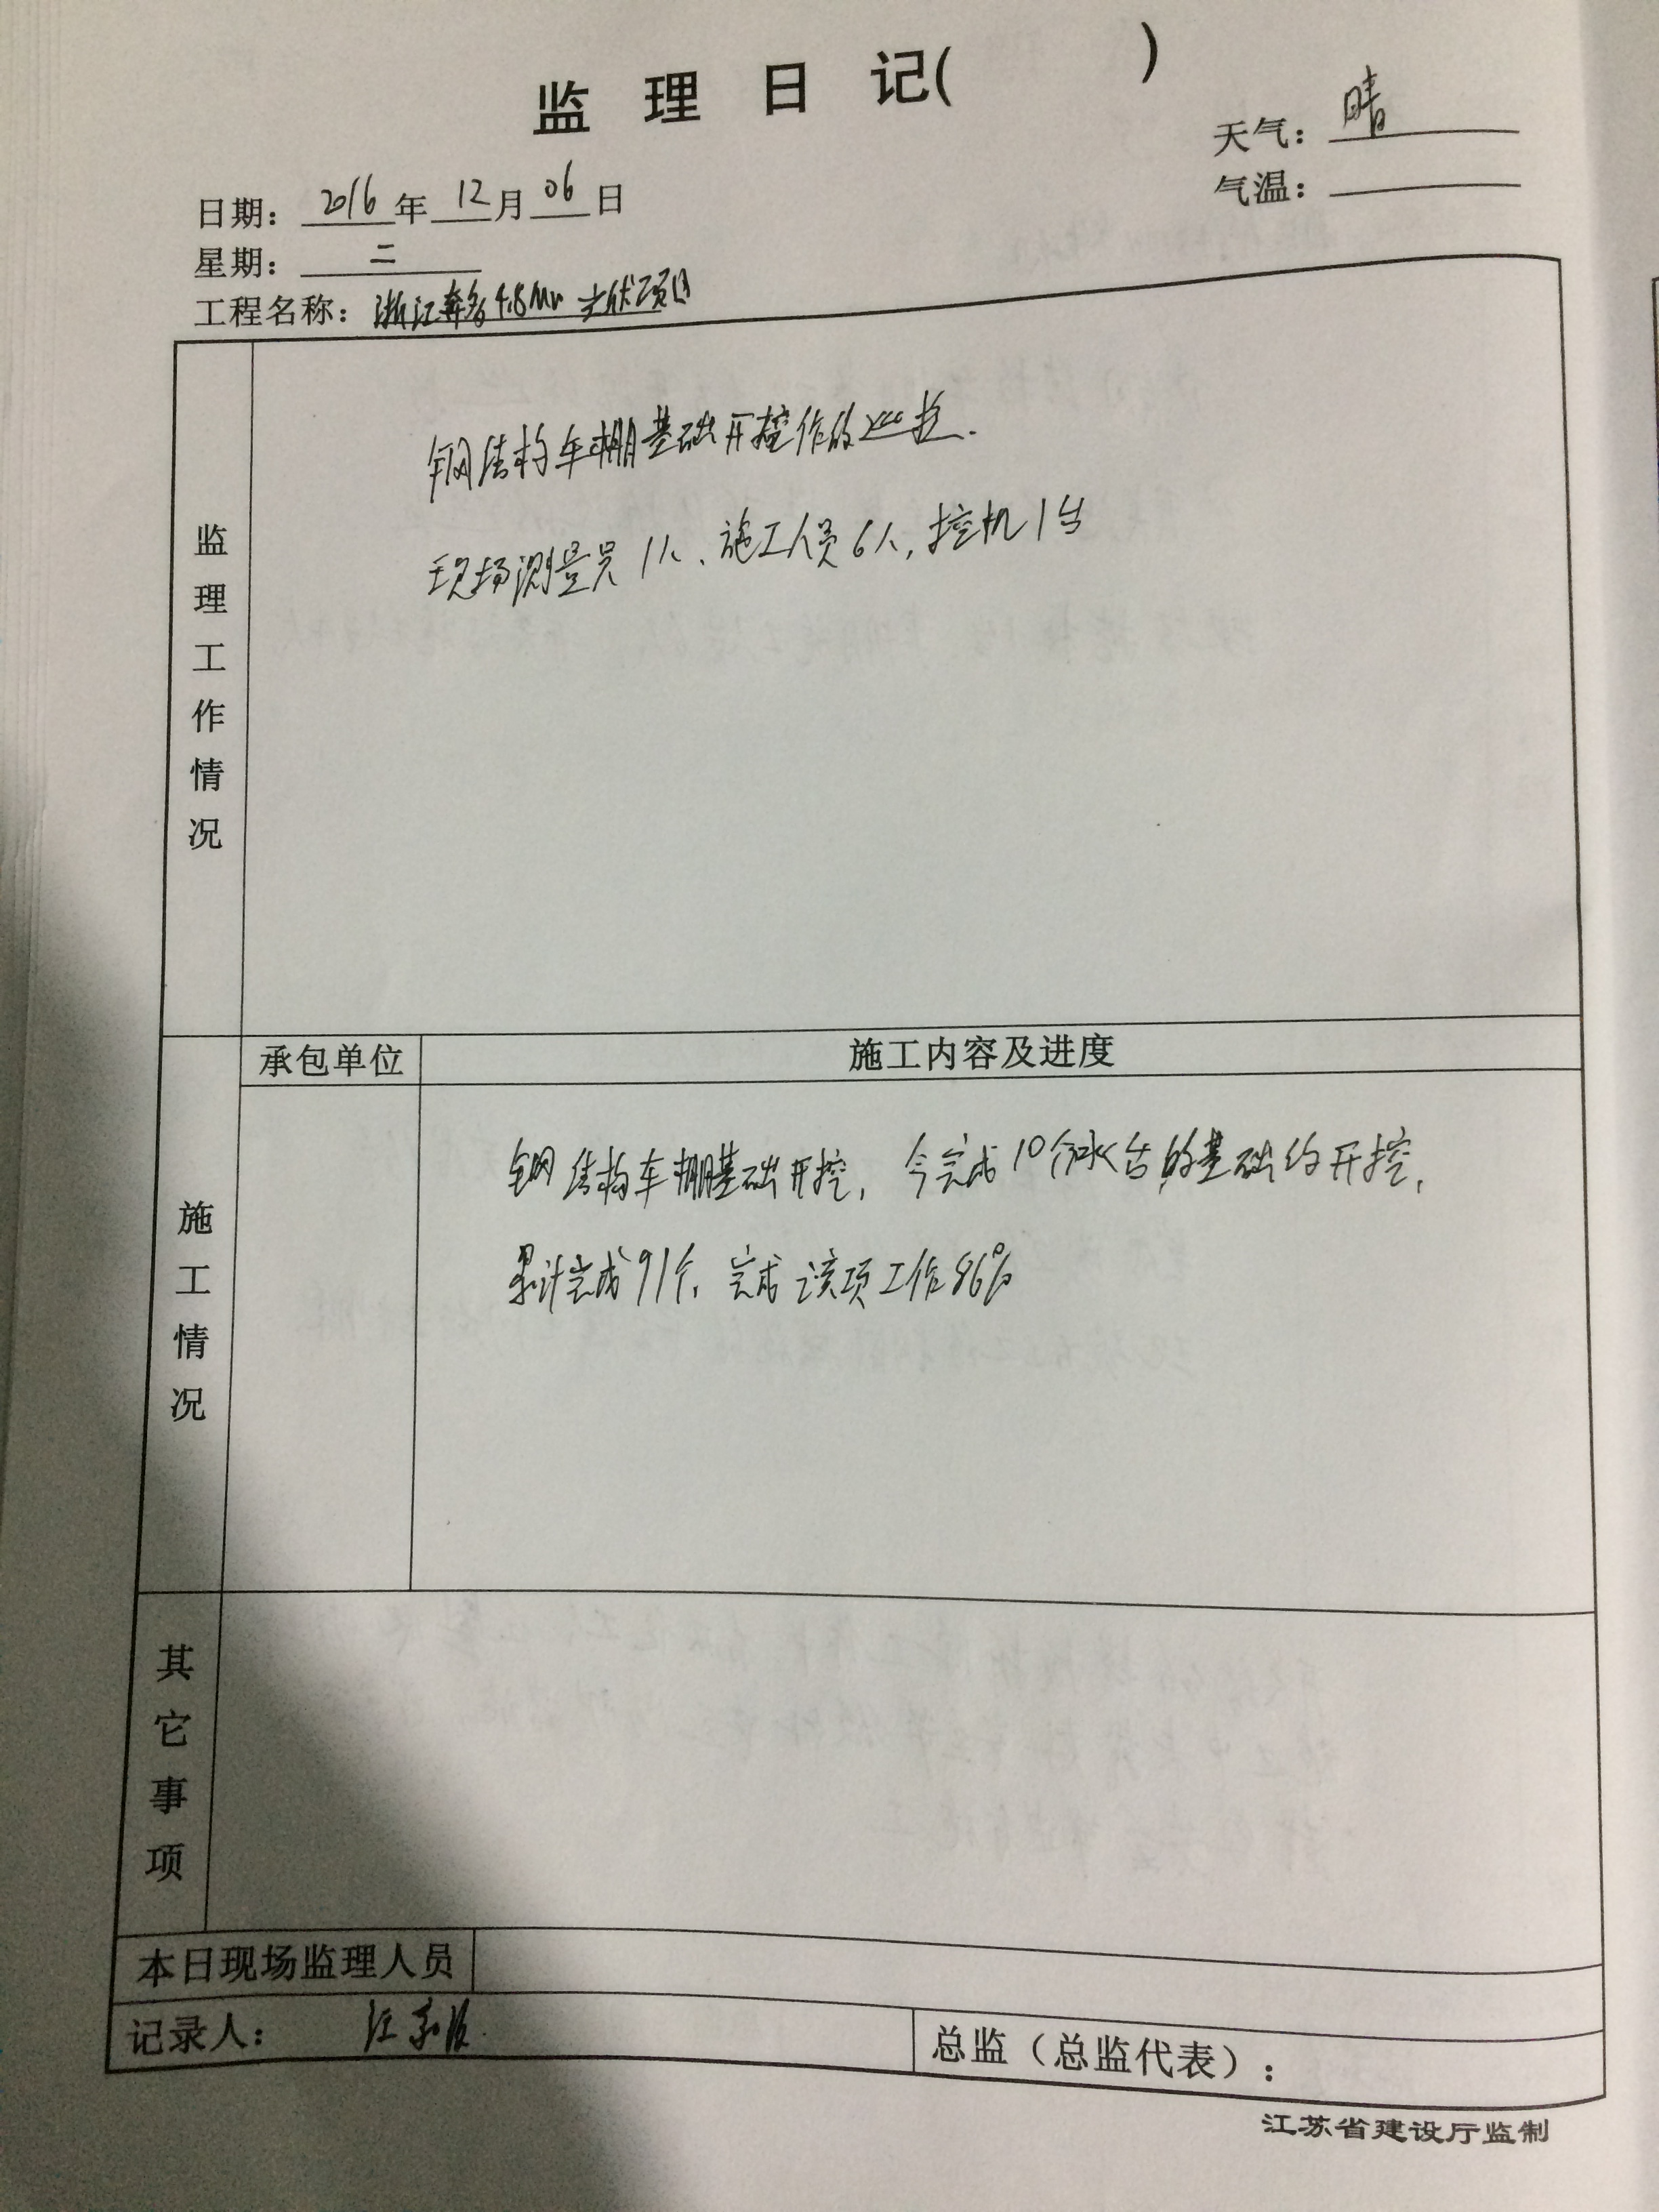 监理日记(        )
天气：晴
气温：
日期：2016年12月06日
星期：二
工程名称：浙江奔多4.8MW光伏项目
监理工作情况
钢结构车棚基础开挖作的巡检.
现场测量员1人、施工人员6人,挖机1台
承包单位 施工内容及进度
施工情况
钢结构车棚基础开挖, 今完成10个承台的基础的开挖,
累计完成91个, 完成该项工作86%
其它事项
本日现场监理人员
记录人：江
总监（总监代表）：
江苏省建设厅监制